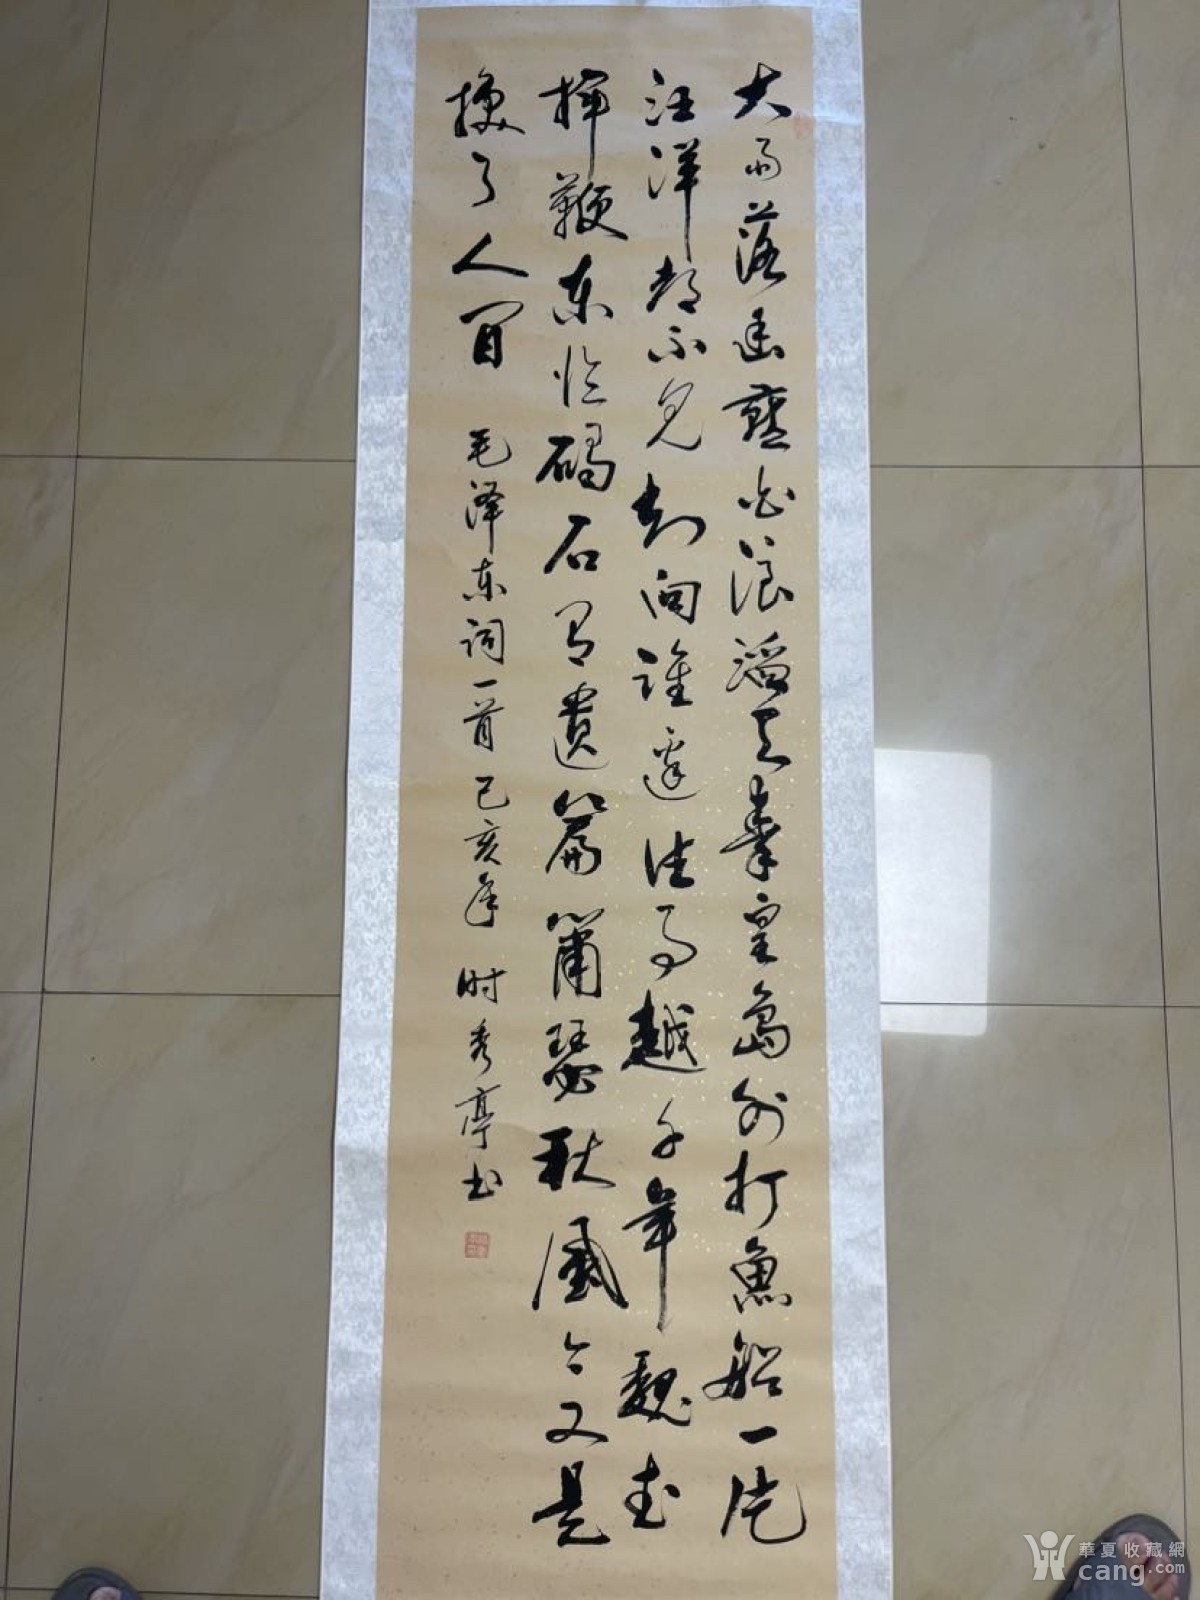 大雨落幽燕白浪滔天秦皇島外打魚船一片
汪洋都不見知向誰邊往事越千年魏武
揮鞭东临碣石有遺篇簫瑟秋風今又是
換了人間 毛泽东词一首己亥年 时秀亭书
華夏收藏網
cang.com